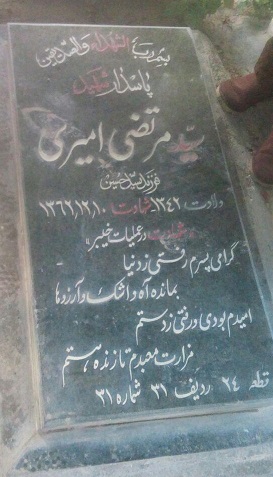 بسم رب الشهداء والصدیقین
پاسدار شهید
سید مرتضی امیری
فرزند سید حسین
ولادت ۱۳۴۲ شهادت ۱۳۶۲,۱۲,۱۰
شهادت در عملیات خیبر
گرامی پسرم رفتی ز دنیا
بمانده آه و اشک و آرزوها
امیدم بودی و رفتی ز دستم
مزارت معبدم تا زنده هستم
قطعه ۲۴ ردیف ۳۱ شماره ۳۱